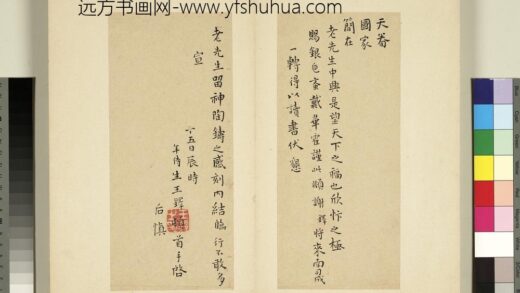 远方书画网-www.yfshuhua.com
天眷
國家
簡在
老先生中興是望天下之福也欣忭之極
賜銀色
謹此頓謝鐸將來南
一轉得以讀書伏懇
老先生留神陶鑄之感刻內結臨行不敢多
宣
五日辰時
年侍生王鐸
首手啓
后慎